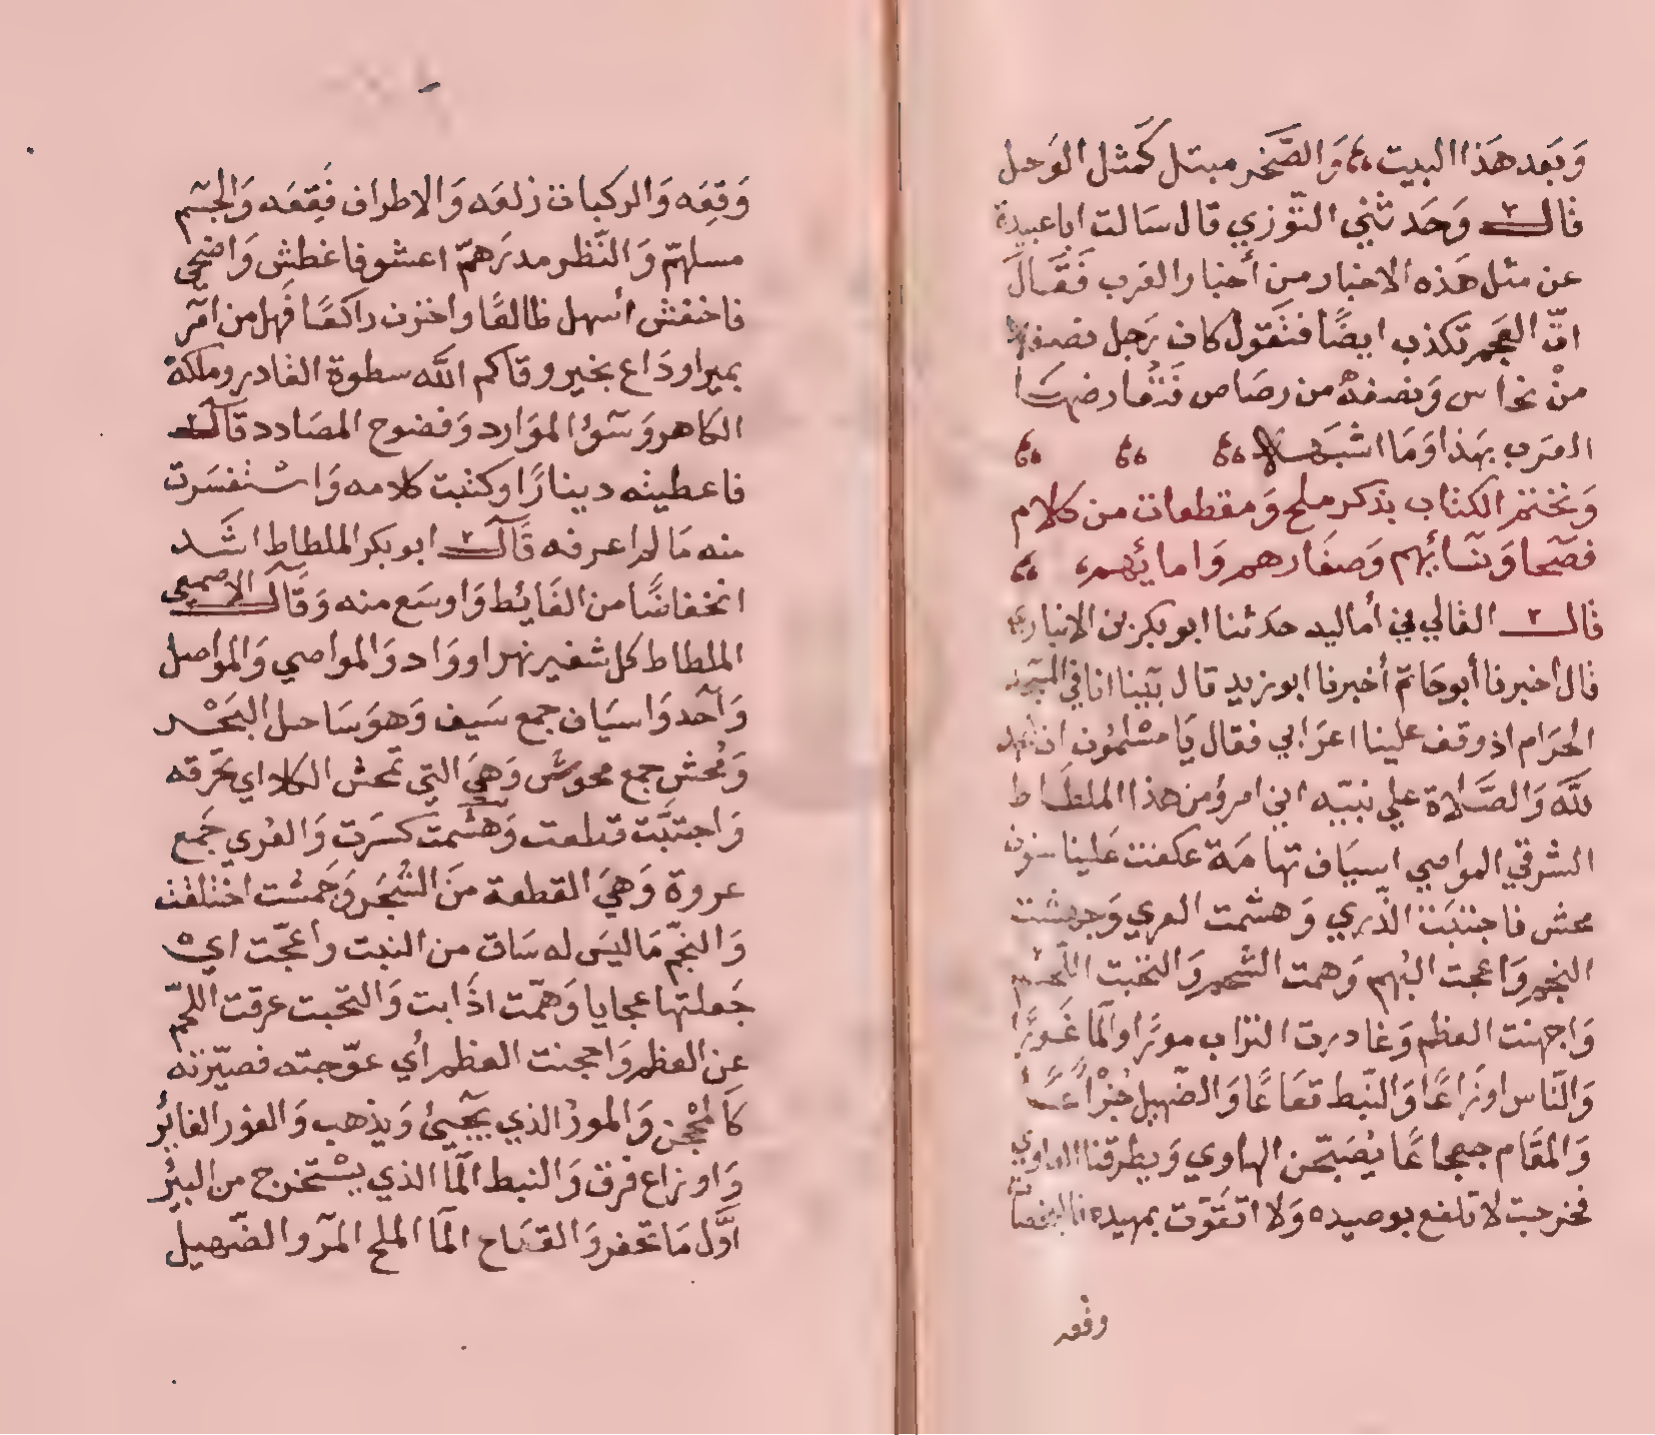 وَبَعد هَذا البيت وَالصَّخر مبتل كَمثل الوَحل
قال وَحَدثني التّوزي قال سَالت ابا عبيدة
عن مثل هَذه الاخبار من أخبار العَرب فَقَالَ
انّ العجَم تكذب ايضًا فتَقول كان رَجل نصفه
منْ نحاس وَنصفهُ من رصَاص فَتُعارضهَا
العَرب بهَذا وَمَا اشبَهه
وَنختم الكتاب بذكر ملح وَمقطعات من كلام
فصَحا وَنسَائهم وَصغَارهم وَامائهم
قال القالي في أماليه حَدثنا ابو بكر بن الانباري
قال اخبرنا أبو حَاتم أخبرنا ابو زيد قال بَينا انا في المسجد
الحرَام اذ وقف علينا اعرَابي فقال يَا مسْلمُون ان الحمد
للَّه وَالصَّلاة علي نبيّه اني امرؤ من هذا الملطَاط
الشرقي المواصي اسيَاف تهامَة عكفت عَلينا سنون
محش فاجتبَت الذّري وَهشمت العري وَجمشت
النجم وَاعجت البُهم وَهمت الشحم وَالتحبت اللّحم
وَاحجنت العظم وَغادرت التراب مورًا وَالمَا غَورًا
وَالنّاس اوزَاعًا وَالنّبط قعَاعًا وَالضّهيل جُزْاعًا
وَالمقَام جعجاعًا يُصَبّحن الهاوي وَيطرقنا العاوي
فخرجت لا تلفع بوصيده وَلا اتقَوّت بمهيده فالبخصات
وقعه
وَقِعَه وَالركبات زلعَه وَالاطراف فَقِعَه وَالجسم
مسلهمّ وَالنَّظر مدرَهمّ اعشو فاغطش وَاضحي
فاخفش أسهل ظالعًا واحزن راكعًا فَهل من آمر
بمير او دَاع بخير وقاكم اللَّه سطوة القادر وملكة
الكاهر وَسَوُ الموَارد وَفضوح المصَادر قالَ
فاعطيته دينارًا وكتبت كلامه وَاستفسَرت
منه مَا لم اعرفه قَالَ ابو بكر الملطاط اشَد
انخفاضًا من الغَائط وَاوسَع منه وَقَالَ الاصمعي
الملطاط كل شفير نهر او وَاد وَالمواصي وَالموَاصل
وَاحَد وَاسيَاف جمع سَيف وَهوَ سَاحل البَحْر
وَمُحش جمع محوش وَهيَ التي تمحش الكلا اي تحَرقه
وَاجتبَّت قطعت وَهشمَت كسَرت وَالعُري جَمع
عروة وَهيَ القطعة منَ الشجَر وَجَمشت احتلقت
وَالنجّم مَا ليسَ له سَاق من النبت وأعجّت ايْ
جَعلتها عجايا وَهمّت اذَابت وَالتحبت عرقت اللحّم
عن العظم وَاحجنت العظم أي عوّجته فصيّرته
كَالمحْجن وَالموز الذي يَجَيئ وَيذهب وَالغور الغائر
وَاوزاع فرق وَالنبط المَا الذي يسْتخرج من البيْر
اَوّل مَا تحفر وَالقعَاع المَا الملح المرّ والضّهيل